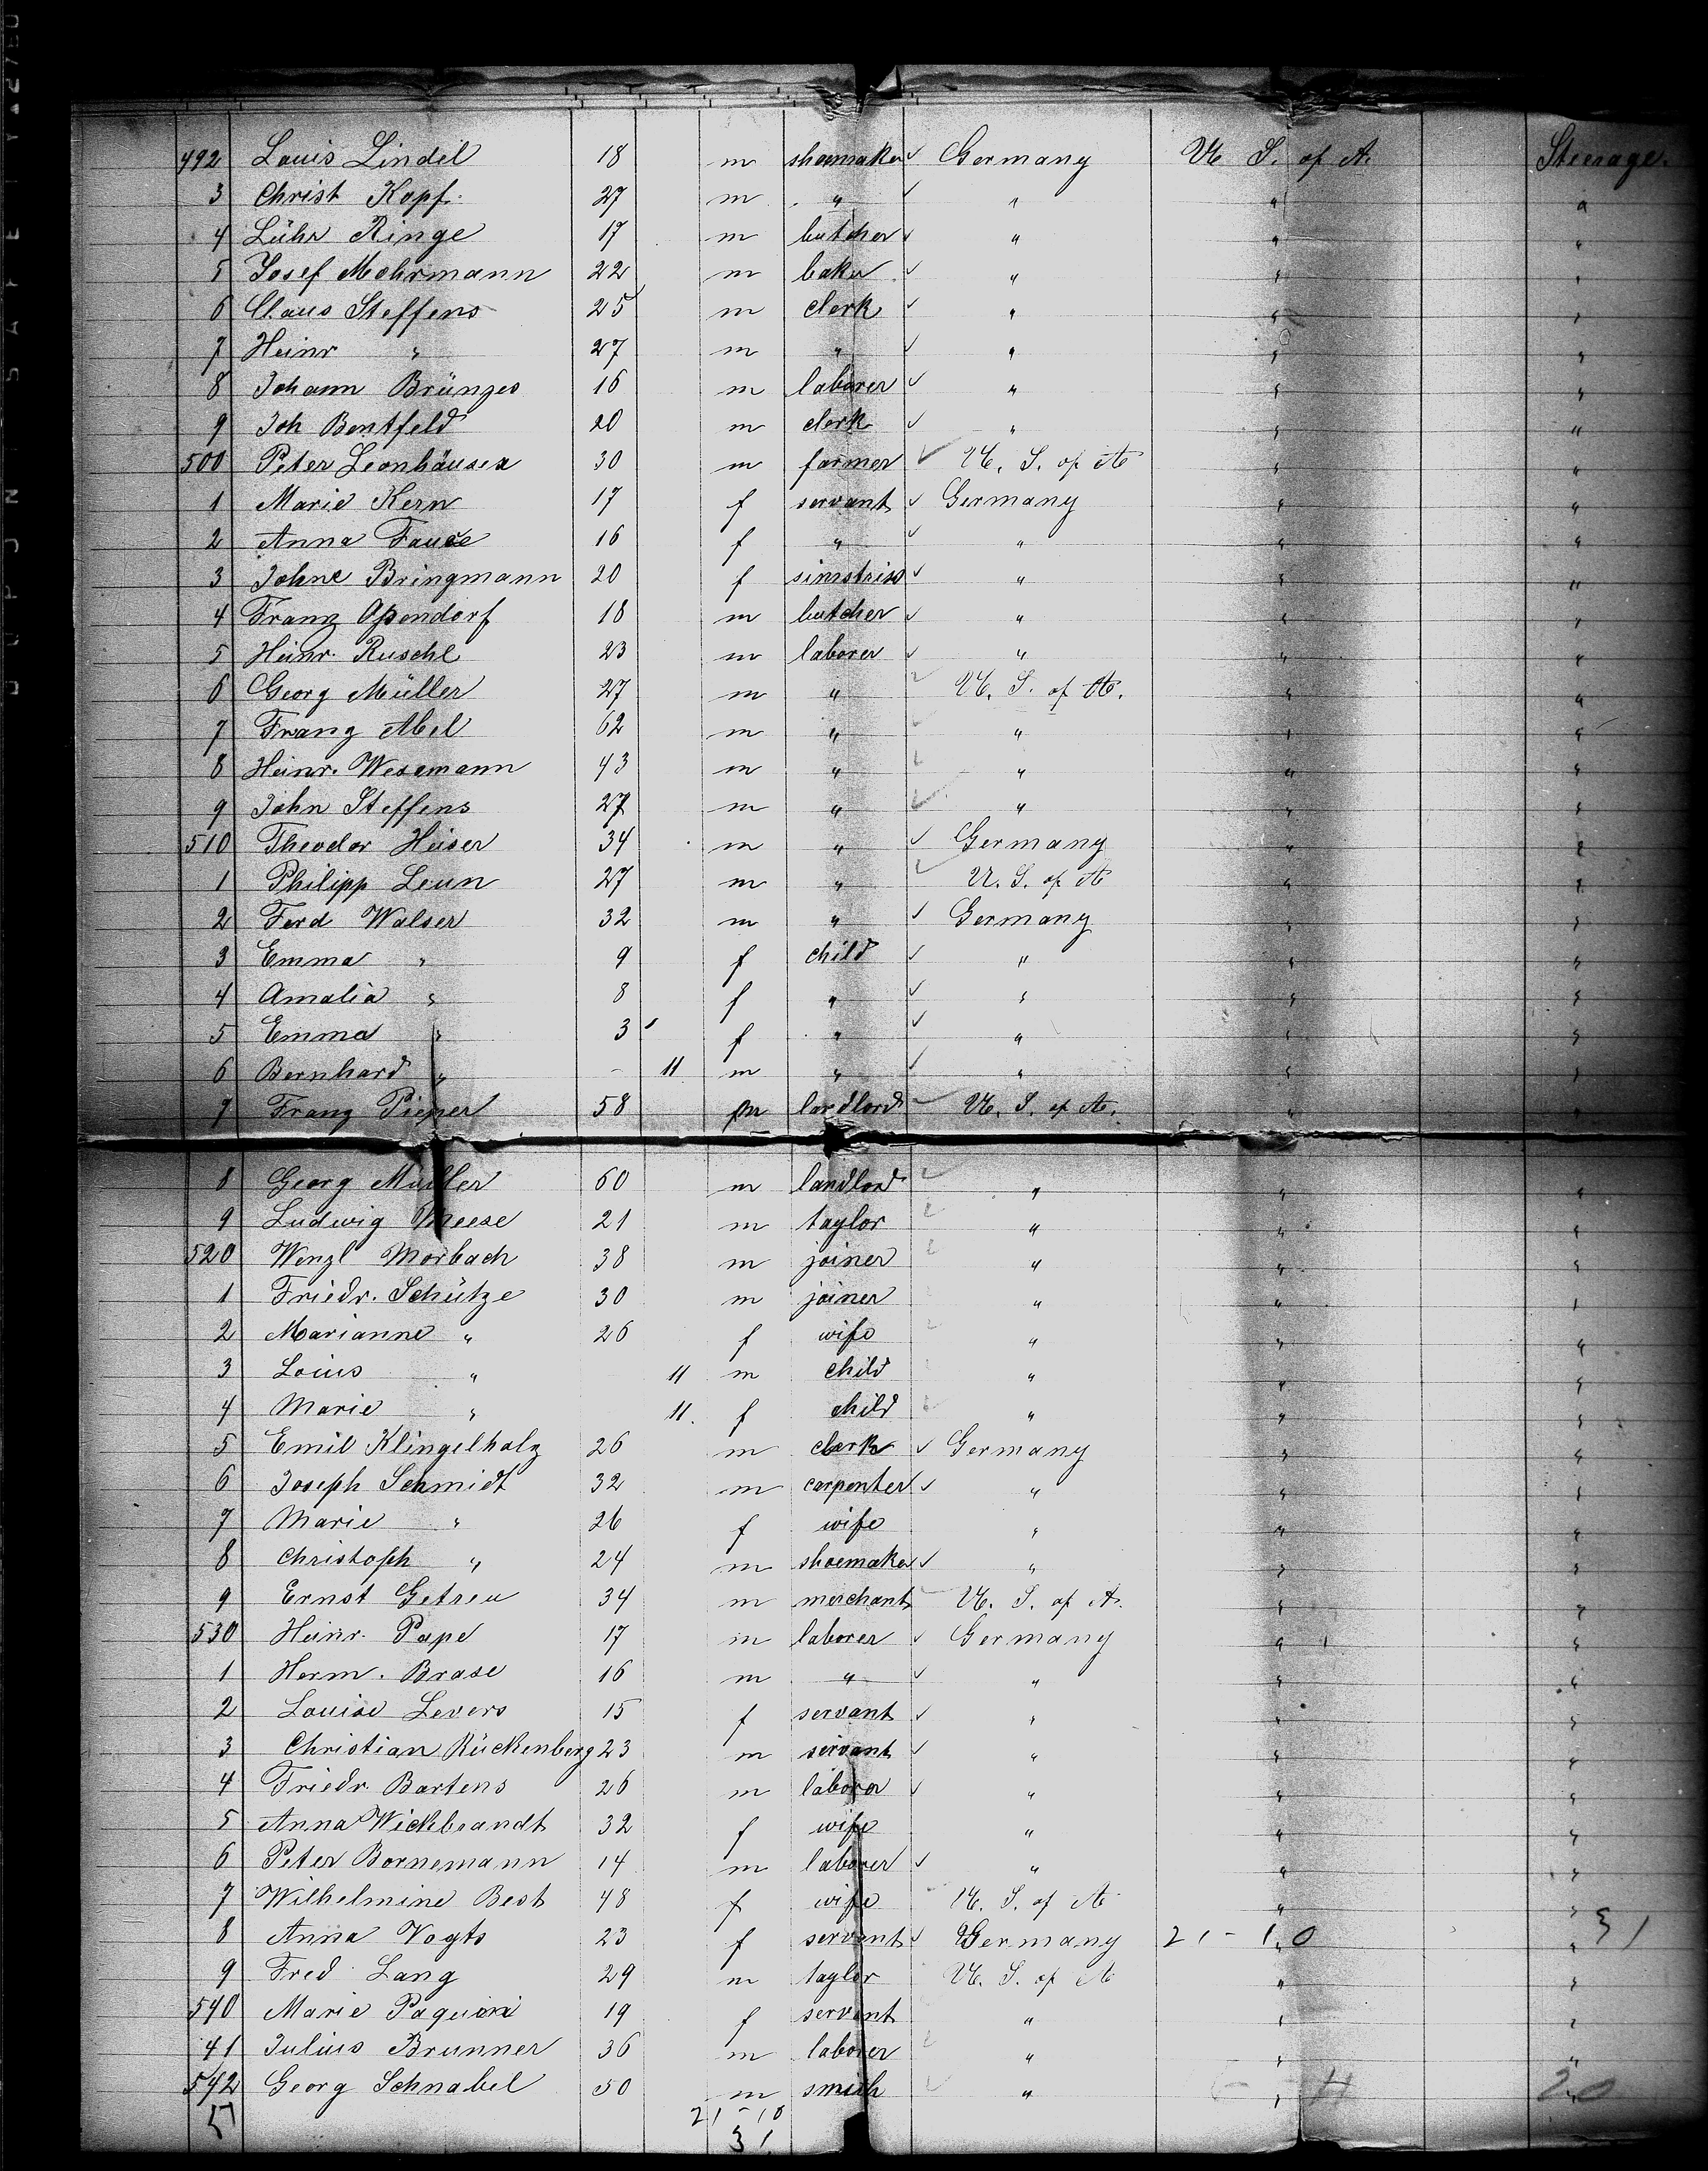 492 Louis Lindel 18 m shoemaker Germany U. S. of A. Steerage.
3 Christ Kopf 27 m " " " "
4 Lühr Ringe 17 m butcher " " "
5 Josef Mohrmann 22 m baker " " "
6 Claus Steffens 25 m clerk " " "
7 Heinr " 27 m " " " "
8 Johann Brünges 16 m laborer " " "
9 Joh Bentfeld 20 m clerk " " "
500 Peter Leonhäuser 30 m farmer U. S. of A " "
1 Marie Kern 17 f servant Germany " "
2 Anna 16 f " " " "
3 Johne Bringmann 20 f simstriss " " "
4 Franz Opendorf 18 m butcher " " "
5 Heinr. Ruschl 23 m laborer " " "
6 Georg Müller 27 m " U. S. of A. " "
7 Franz Abel 62 m " " " "
8 Heinr. Wesemann 43 m " " " "
9 John Steffens 27 m " " " "
510 Theodor Heiser 34 m " Germany " "
1 Philipp Leun 27 m " U. S. of A " "
2 Ferd Walser 32 m " Germany " "
3 Emma " 9 f child " " "
4 Amalia " 8 f " " " "
5 Emma " 3 f " " " "
6 Bernhard " - 11 m " " " "
7 Franz Pieper 58 m landlord U. S. of A. " "
8 Georg Müller 60 m landlord " " "
9 Ludwig Meese 21 m taylor " " "
520 Wenzl Morbach 38 m joiner " " "
1 Friedr. Schütze 30 m joiner " " "
2 Marianne " 26 f wife " " "
3 Loius " 11 m child " " "
4 Marie " 11. f child " " "
5 Emil Klingelholz 26 m clerk Germany " "
6 Joseph Schmidt 32 m carpenter " " "
7 Marie " 26 f wife " " "
8 Christoph " 24 m shoemaker " " "
9 Ernst Getreu 34 m merchant U. S. of A. " "
530 Heinr. Pape 17 m laborer Germany " "
1 Herm. Brase 16 m " " " "
2 Louise Levers 15 f servant " " "
3 Christian Rückenberg 23 m servant " " "
4 Friedr. Bartens 26 m laborer " " "
5 Anna Wickbrandt 32 f wife " " "
6 Peter Bornemann 14 m laborer " " "
7 Wilhelmine Best 48 f wife U. S. of A " "
8 Anna Vogts 23 f servant Germany 21 - 10 " " 31
9 Fred Lang 29 m taylor U. S. of A " "
540 Marie 19 f servant " " "
41 Julius Brunner 36 m laborer " " "
542 Georg Schnabel 50 m smith " " " 20
21 - 10
31